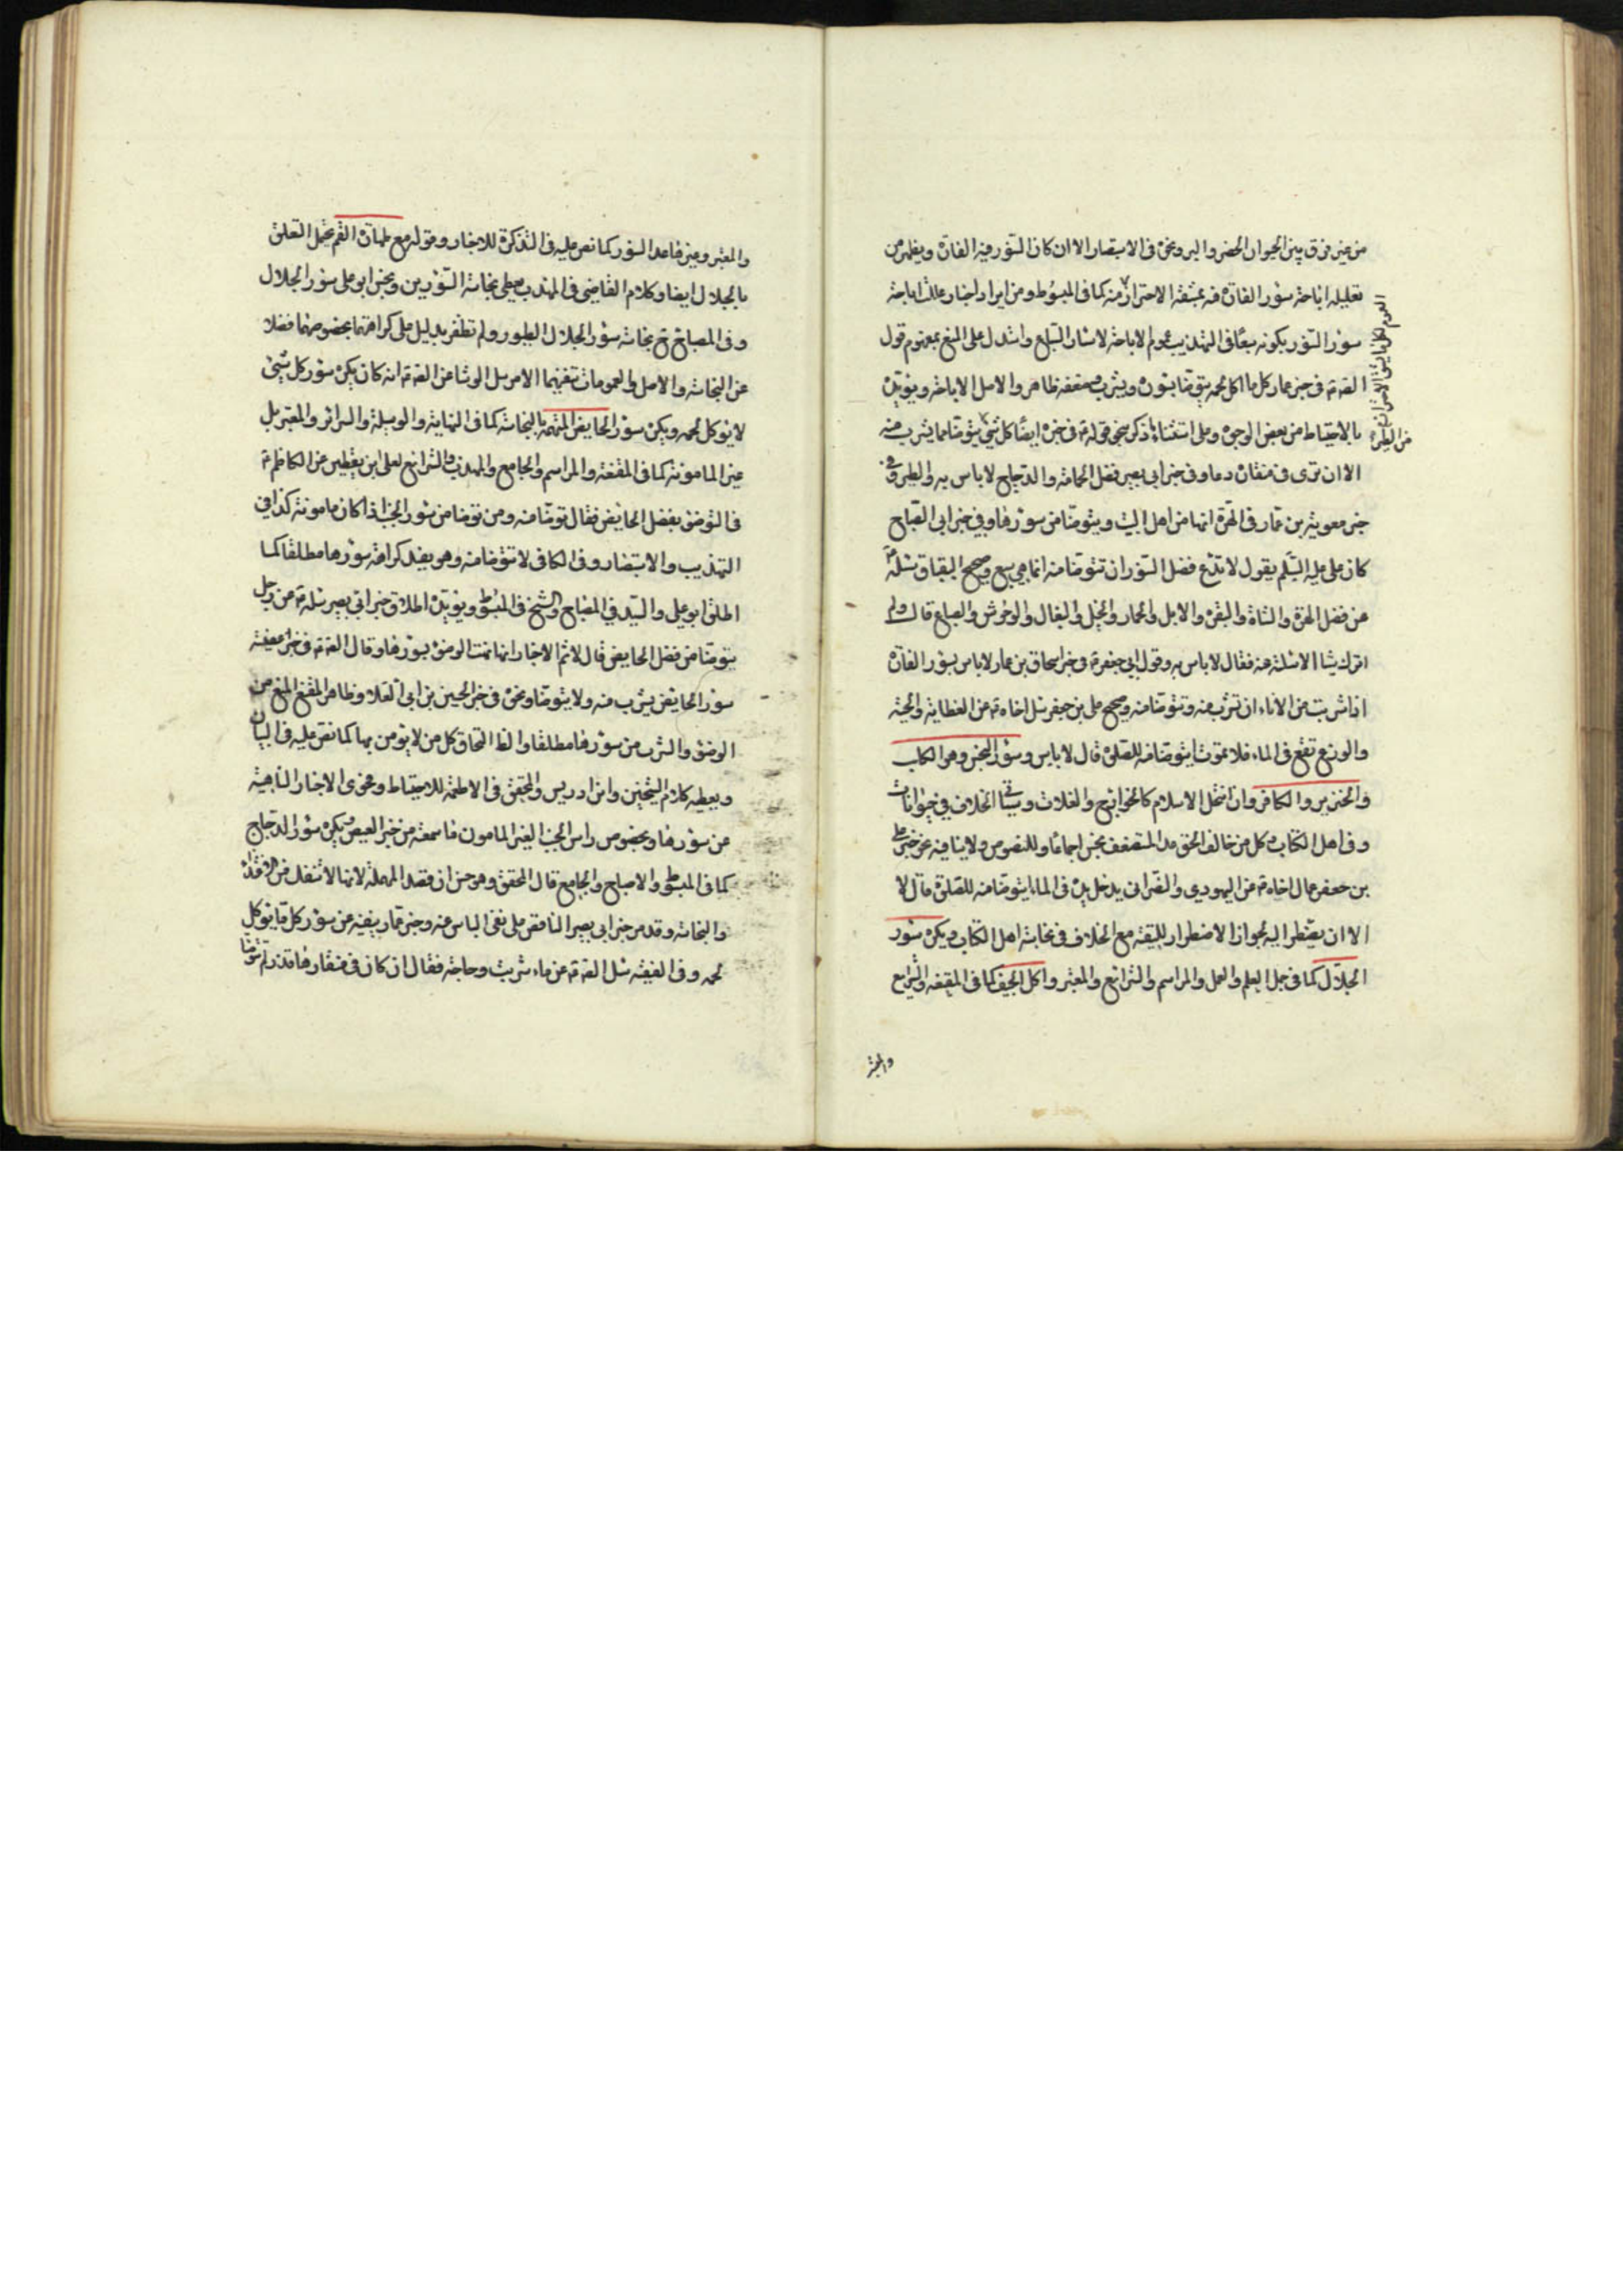 من غير فرق بين الحيوان الحضر والبر ونحوه فى الاستبصار الا ان كان السؤر فيه الفارة ويظهر من
تعليله اباحة سؤر الفارة فيه بمشقة الاحتراز منه كما فى المبسوط ومن ايراد اخبار علل اباحة
سؤر السنور بكونه سبعا فى التهذيب عموم الاباحة لاسئار السباع واستدل على المنع بمفهوم قول
الصادق ع فى خبر عمار كل ما اكل لحمه يتوضا بسؤره ويشرب وضعفه ظاهر والاصل الاباحة ويؤيده
بالاحتياط من بعض الوجوه وعلى استثناء ما ذكر بنحو قوله ع فى خبره ايضا كل شىء يتوضا مما يشرب منه
الا ان ترى فى منقاره دما وفى خبر ابى بصير فضل الحمامة والدجاج لا باس به والطير وفى
خبر معوية بن عمار فى الهرة انها من اهل البيت ويتوضا من سؤرها وفي خبر ابى الصباح
كان على عليه السلم يقول لا تدع فضل السنور ان تتوضا منه انما هي سبع وصحيح البقباق سئله ع
عن فضل الهرة والشاة والبقرة والابل والحمار والخيل والبغال والوحوش والسباع قال ولم
اترك شيئا الا سئلته عنه فقال لا باس به وقول ابي جعفر ع فى خبر اسحاق بن عمار لا باس بسؤر الفارة
اذا شربت من الاناء ان تشرب منه وتتوضا منه وصحيح على بن جعفر سئل اخاه ع عن العظاية والحية
والوزغ تقع فى الماء فلا تموت ايتوضا منه للصلوة قال لا باس وسؤر النجس وهو الكلب
والخنزير والكافر وان انتحل الاسلام كالخوارج والغلاة وسياتى الخلاف فى حيوانات
وفى اهل الكتاب وكل من خالف الحق عدا المستضعف نجس اجماعا وللنصوص ولا ينافيه نحو خبر على
بن جعفر سال اخاه ع عن اليهودى والنصرانى يدخل يده فى الماء ايتوضا منه للصلوة قال لا
الا ان يضطر اليه لجواز الاضطرار للتقية مع الخلاف فى نجاسة اهل الكتاب ويكره سؤر
الجلال كما فى جمل العلم والعمل والمراسم والشرائع والمعتبر واكل الجيف كما فى المقنعة والشرايع
والمعتبر
والمعتبر وغيرها عدا السؤر كما نص عليه فى التذكرة للاخبار وقوله مع طهارة الفم يحتمل التعلق
بالجلال ايضا وكلام القاضى فى المهذب يعطى نجاسة السؤرين ونجس ابو على سؤر الجلال
وفى المصباح نجاسة سؤر الجلال الطيور ولم نظفر بدليل على كراهتهما بخصوصهما فضلا
عن النجاسة والاصل والعمومات تنفيهما الا مرسل الوشا عن الصادق ع انه كان يكره سؤر كل شىء
لا يؤكل لحمه ويكره سؤر الحايض المتهمة بالنجاسة كما فى النهاية والوسيلة والسرائر والمعتبر بل
غير المامونة كما فى المقنعة والمراسم والجامع والمهذب والشرائع لعلى ابن يقطين عن الكاظم ع
فى التوضى بفضل الحايض فقال توضا منه ومن توضا من سؤر الجنب اذا كان مامونة كذا في
التهذيب والاستبصار وفى الكافى لا تتوضا منه وهو يفيد كراهة سؤرها مطلقا كما
اطلق ابو على والسيد في المصباح والشيخ فى المبسوط ويؤيده اطلاق خبر ابى بصير سئله ع عن رجل
يتوضا من فضل الحايض قال لا ثم الاخبار انما نهت الوضوء بسؤرها وقال الصادق ع فى خبر عنبسة
سؤر الحايض يشرب منه ولا يتوضا ونحوه فى خبر الحسين بن ابى العلا وظاهر المقنع المنع من
الوضوء والشرب من سؤرها مطلقا والظ التحاق كل من لا يؤمن بها كما نص عليه فى البيان
ويعطيه كلام الشيخين وابن ادريس والمحقق فى الاطعمة للاحتياط وفحوى الاخبار الناهية
عن سؤرها وبخصوص راس الجنب الغير المامون ما سمعته من خبر العيص ويكره سؤر الدجاج
كما فى المبسوط والاصباح والجامع قال المحقق وهو حسن ان قصد المهملة لانها لا تنفك من
والنجاسة وقد مر خبر ابى بصير الناص على نفى الباس عنه وخبر عمار ينفيه عن سؤر كل ما يؤكل
لحمه وفى الفقيه سئل الصادق ع عن ماء شربت دجاجة فقال ان كان فى منقارها قذر لم تتوضا